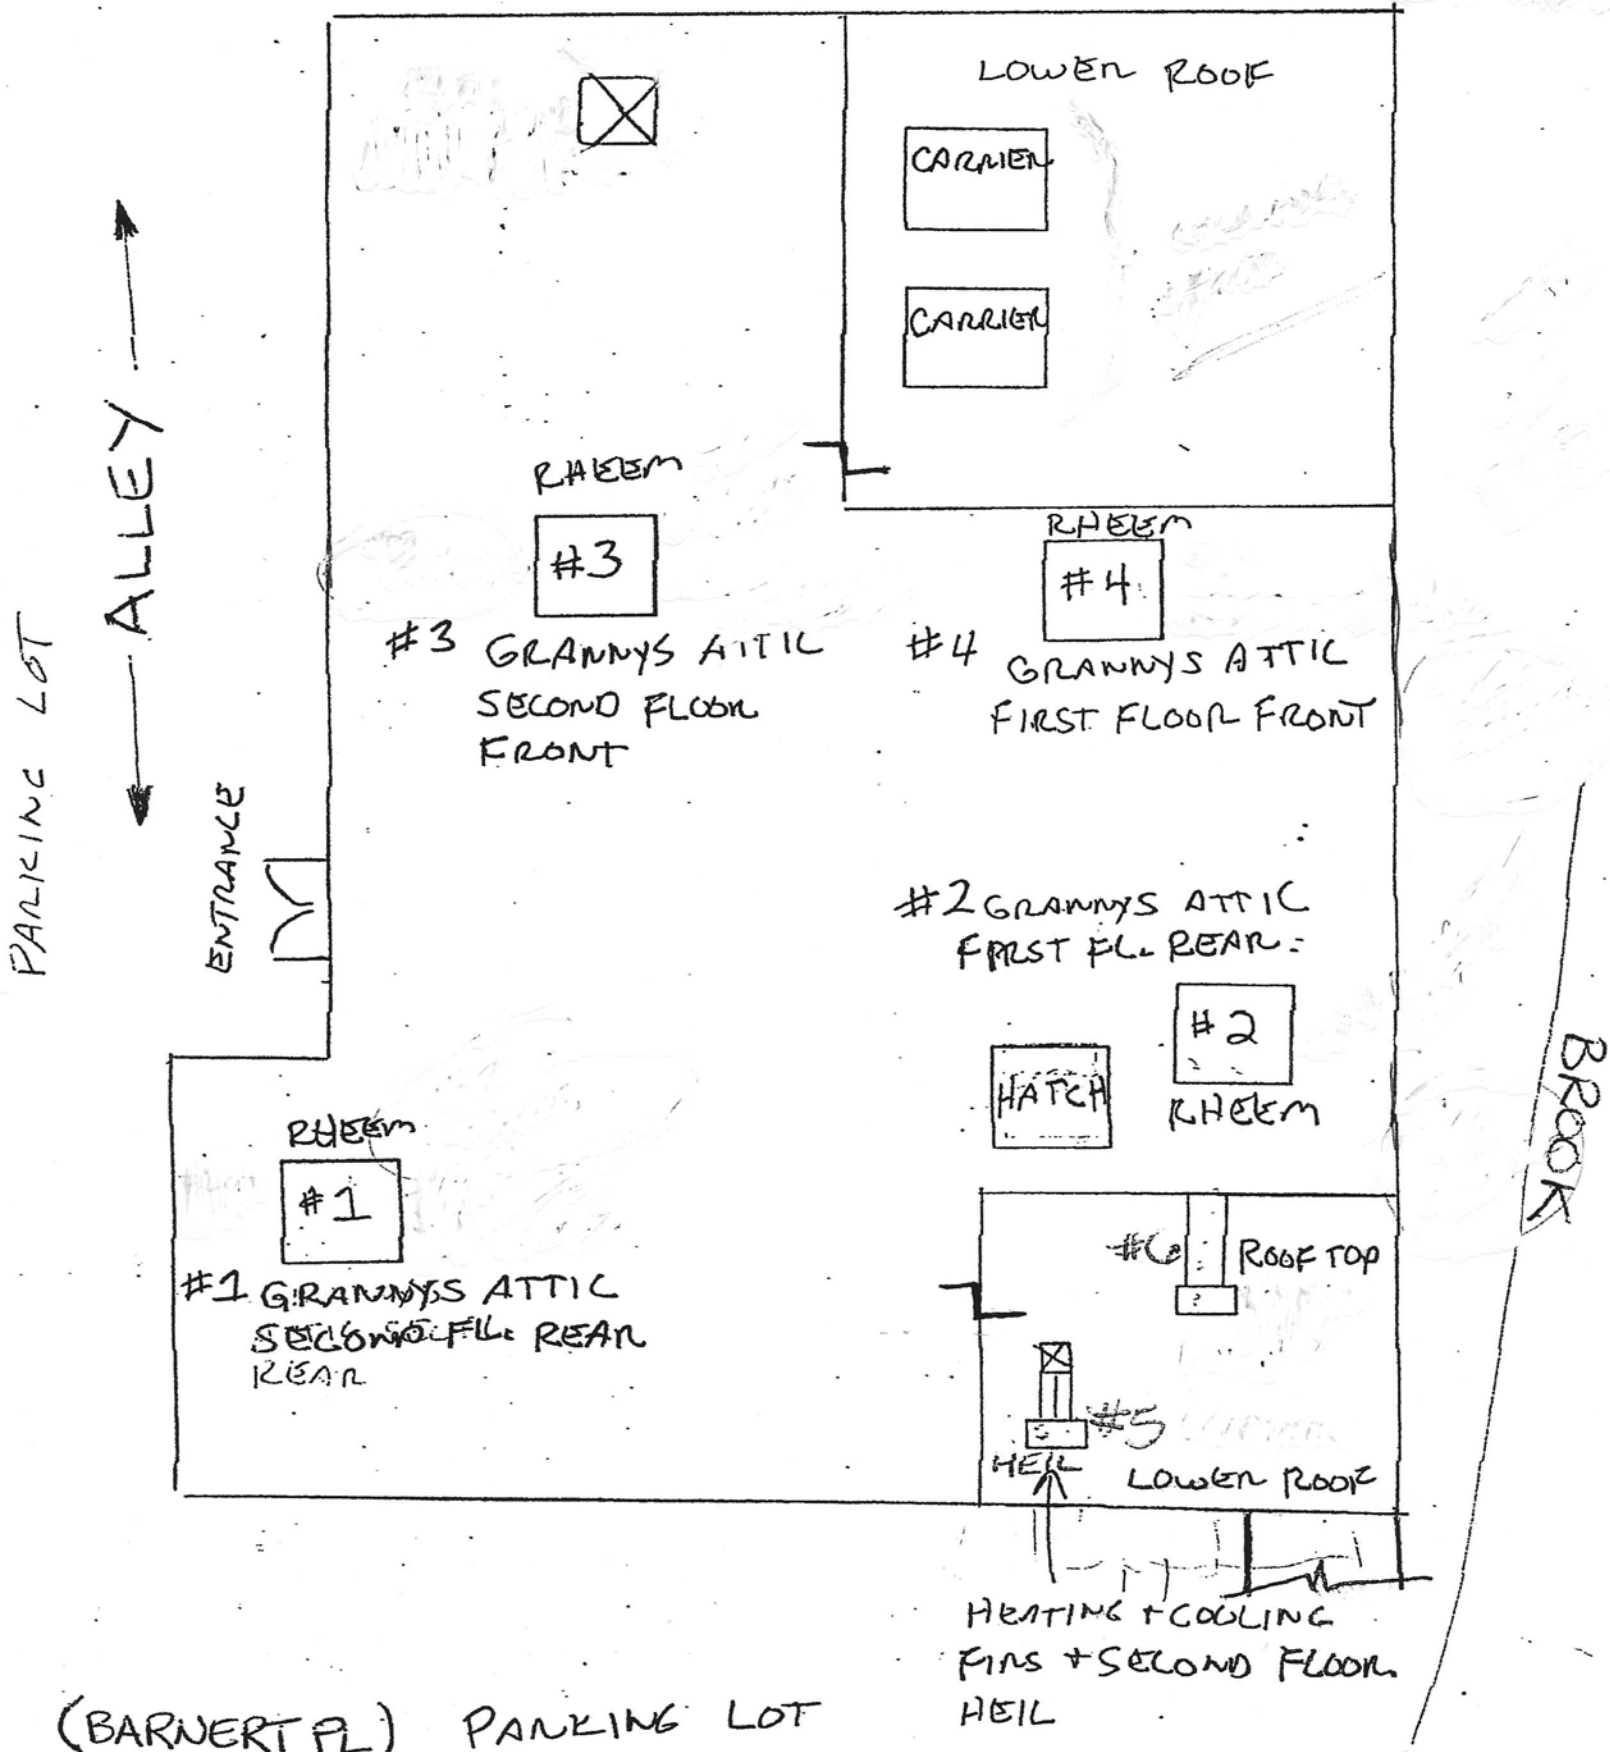 LOWER ROOF
CARRIER
CARRIER
ALLEY
PARKING LOT
ENTRANCE
RHEEM
#3
#3 GRANNYS ATTIC
SECOND FLOOR
FRONT
RHEEM
#4
#4 GRANNYS ATTIC
FIRST FLOOR FRONT
#2 GRANNYS ATTIC
FIRST FL. REAR
#2
HATCH
RHEEM
BROOK
RHEEM
#1
#1 GRANNYS ATTIC
SECOND FL. REAR
REAR
#6 ROOF TOP
#5
HEIL
LOWER ROOF
HEATING + COOLING
FIRS + SECOND FLOOR
HEIL
(BARNERT PL) PARKING LOT